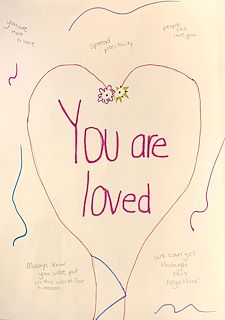 you're
not
alone
spread
positivity
people
still
love you
You are
loved
Always know
you were put
in this world for
a reason
we can get
through
this
together